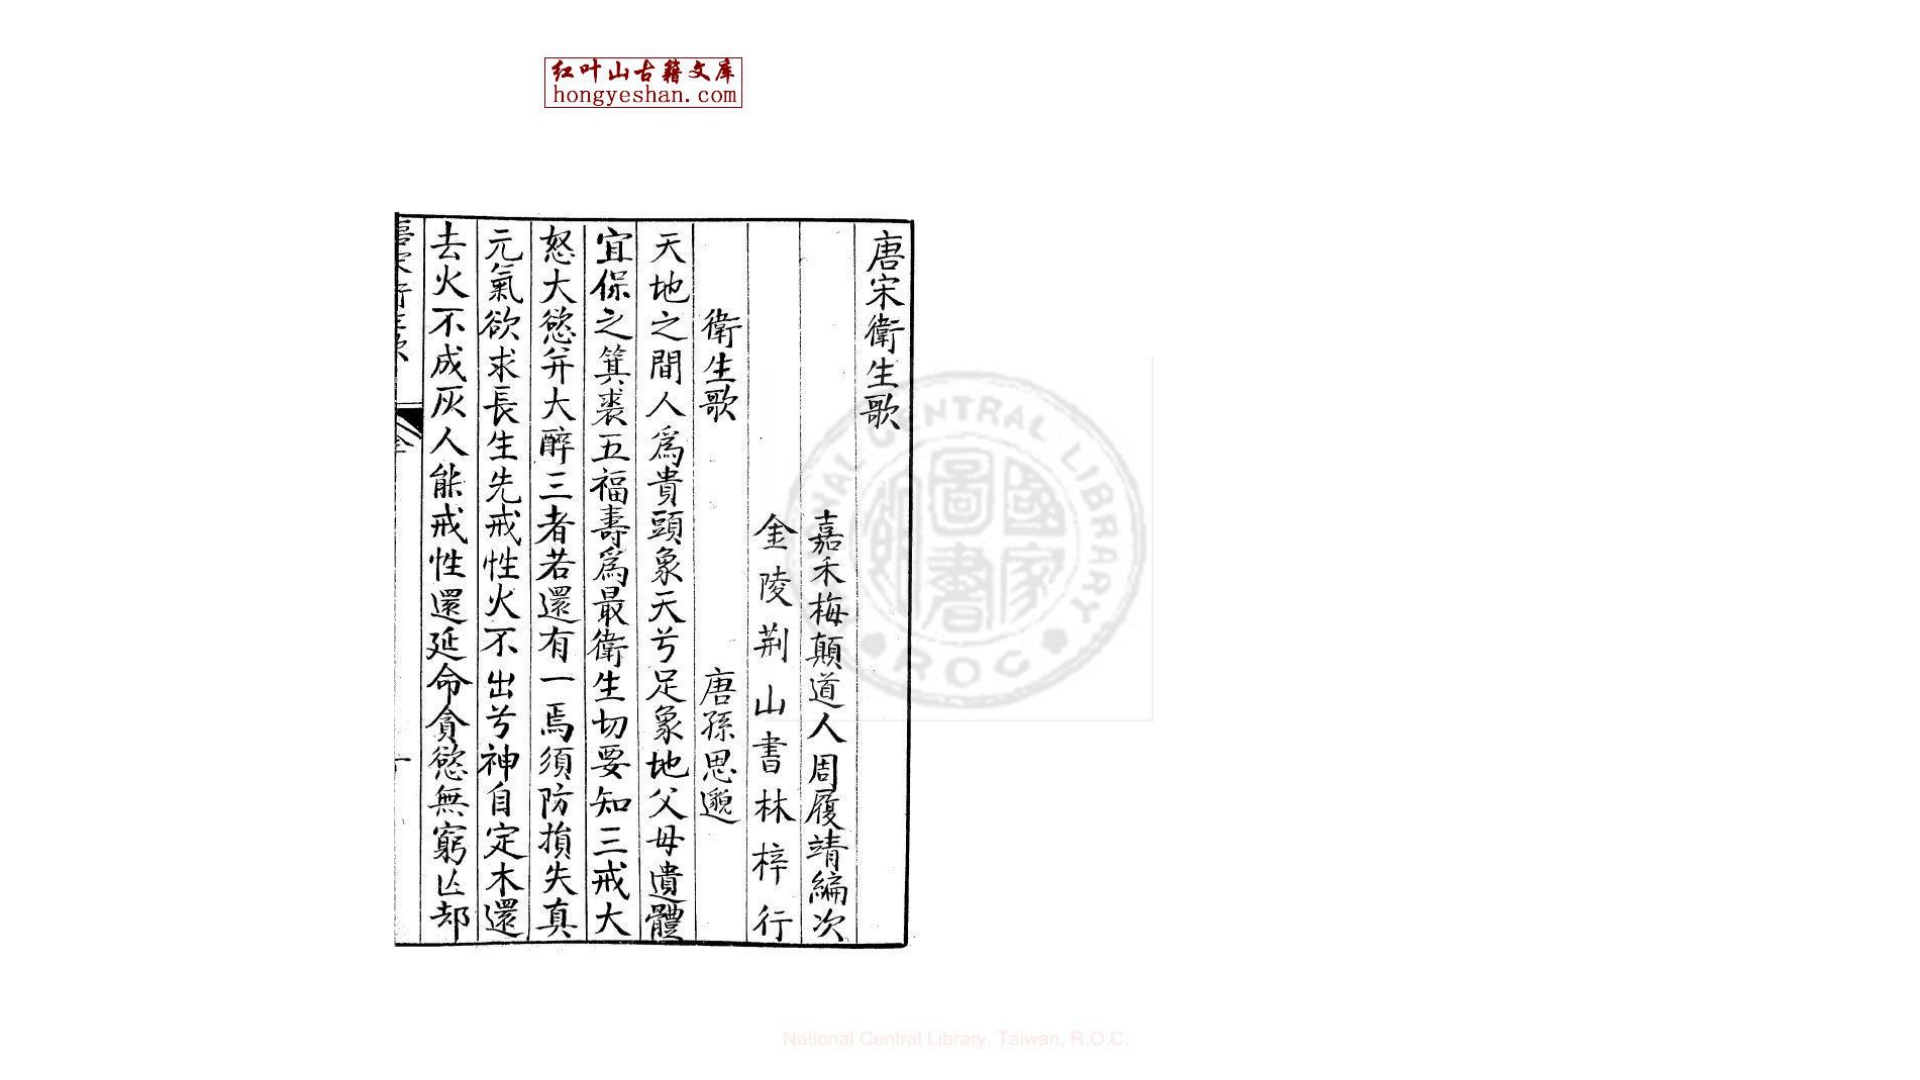 红叶山古籍文库
hongyeshan.com
唐宋衛生歌
嘉禾梅顛道人周履靖編次
金陵荆山書林梓行
衛生歌
唐孫思邈
天地之間人爲貴頭象天兮足象地父母遺體
宜保之箕裘五福壽爲最衛生切要知三戒大
怒大慾并大醉三者若還有一焉須防損失真
元氣欲求長生先戒性火不出兮神自定木還
去火不成灰人能戒性還延命貪慾無窮亾却
NATIONAL CENTRAL LIBRARY
ROC
國家圖書館
National Central Library, Taiwan, R.O.C.